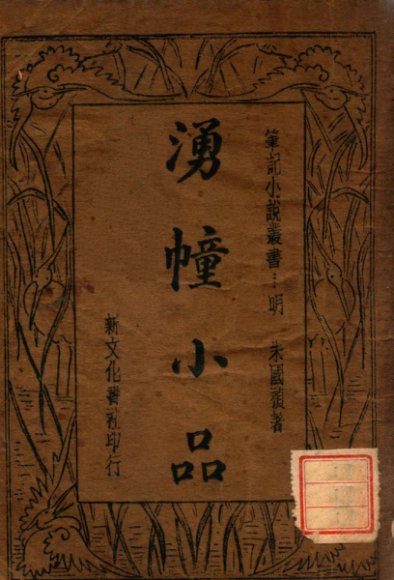 筆記小說叢書…明 朱國禎著
湧幢小品
新文化書社印行